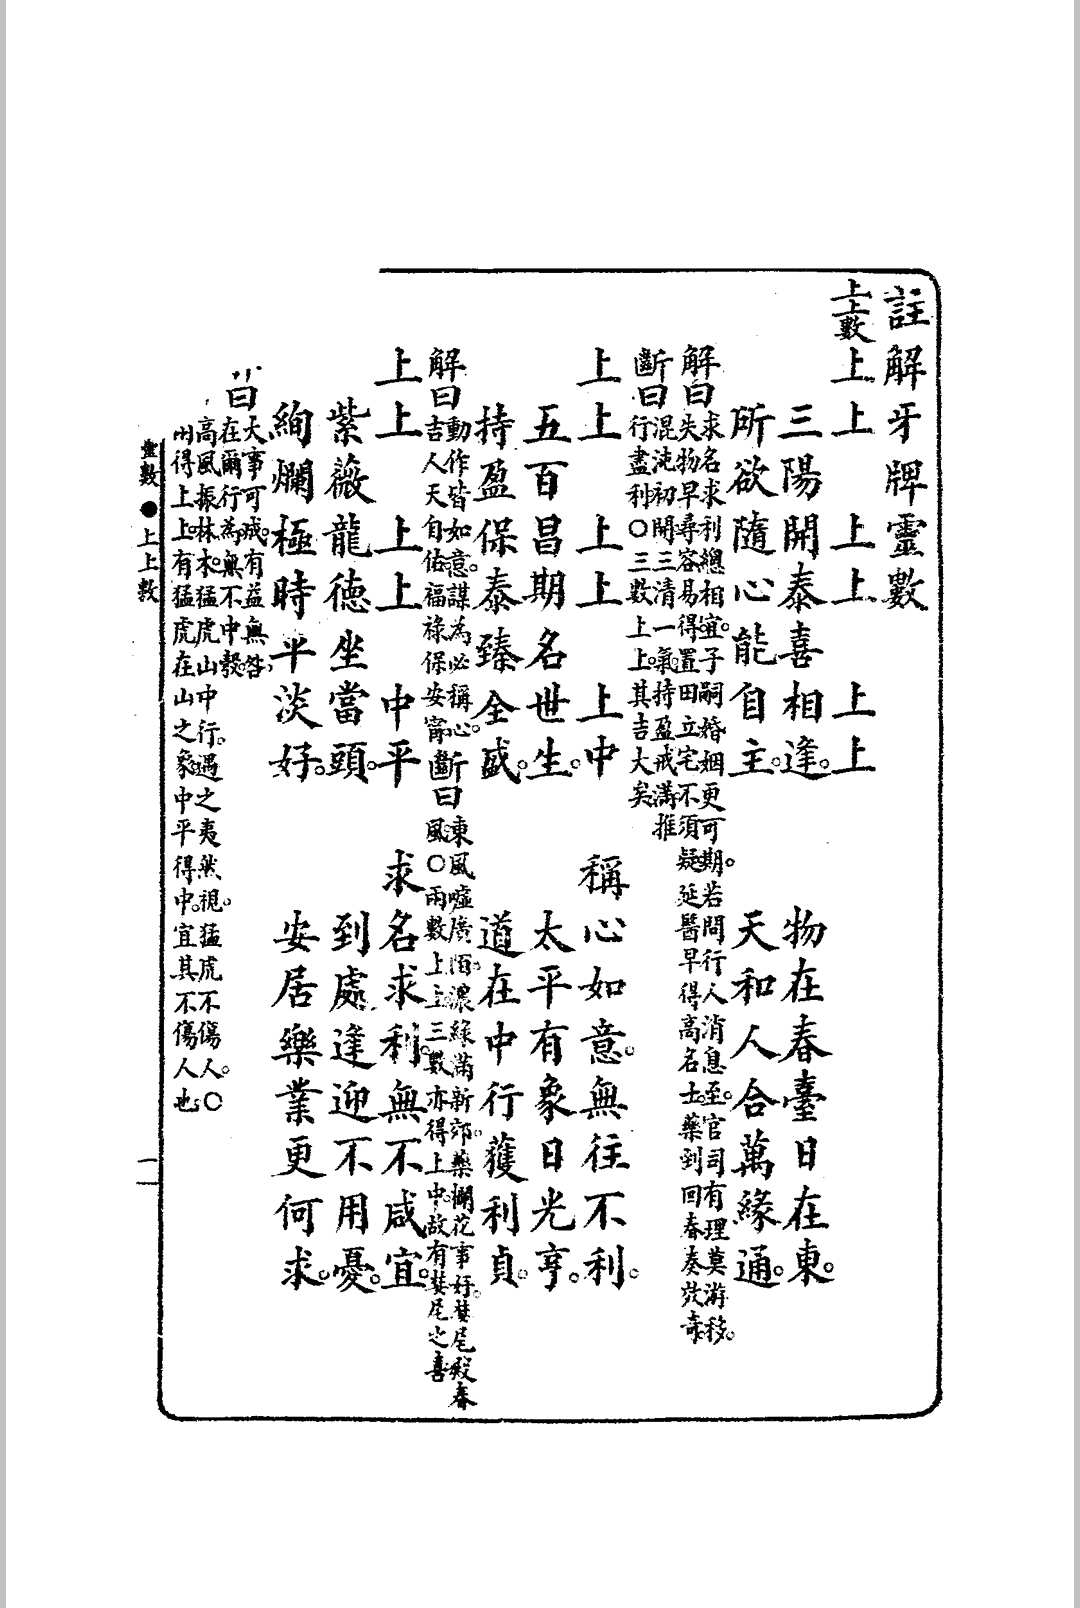 註解牙牌靈數
上上數
上上　上上　上上
三陽開泰喜相逢。物在春臺日在東。
所欲隨心能自主。天和人合萬緣通。
解曰
求名求利總相宜。子嗣婚姻更可期。若問行人消息至。官司有理莫游移。
失物早尋容易得。置田立宅不須疑。延醫早得高名士。藥到回春奏效奇。
斷曰
混沌初開。三清一氣。持盈戒滿。推
行盡利〇三數上上。其吉大矣
上上　上上　上中　稱心如意。無往不利。
五百昌期名世生。太平有象日光亨。
持盈保泰臻全盛。道在中行獲利貞。
解曰
動作皆如意。謀為必稱心。
吉人天自佑。福祿保安甯。
斷曰
東風噓廣陌。濃綠滿新郊。藥欄花事好。婪尾殿春
風〇兩數上上三數亦得上中。故有婪尾之喜
上上　上上　中平　求名求利。無不咸宜。
紫薇龍德坐當頭。到處逢迎不用憂。
絢爛極時平淡好。安居樂業更何求。
曰
大事可成。有益無咎
在爾行為。無不中彀。
高風振林木。猛虎山中行。遇之夷然視。猛虎不傷人。〇
得上上。有猛虎在山之象。中平得中。宜其不傷人也
靈數●上上數
一